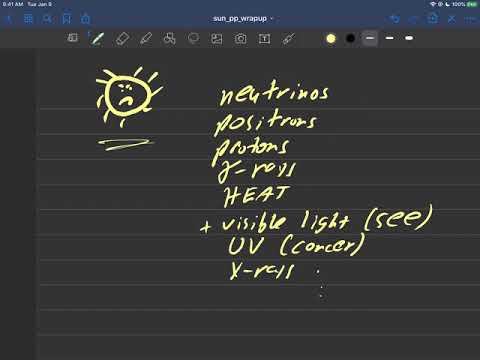 9:41 AM Tue Jan 9
100%
sun_pp_wrapup
neutrinos
positrons
protons
γ-rays
HEAT
+ visible light (see)
UV (cancer)
X-rays